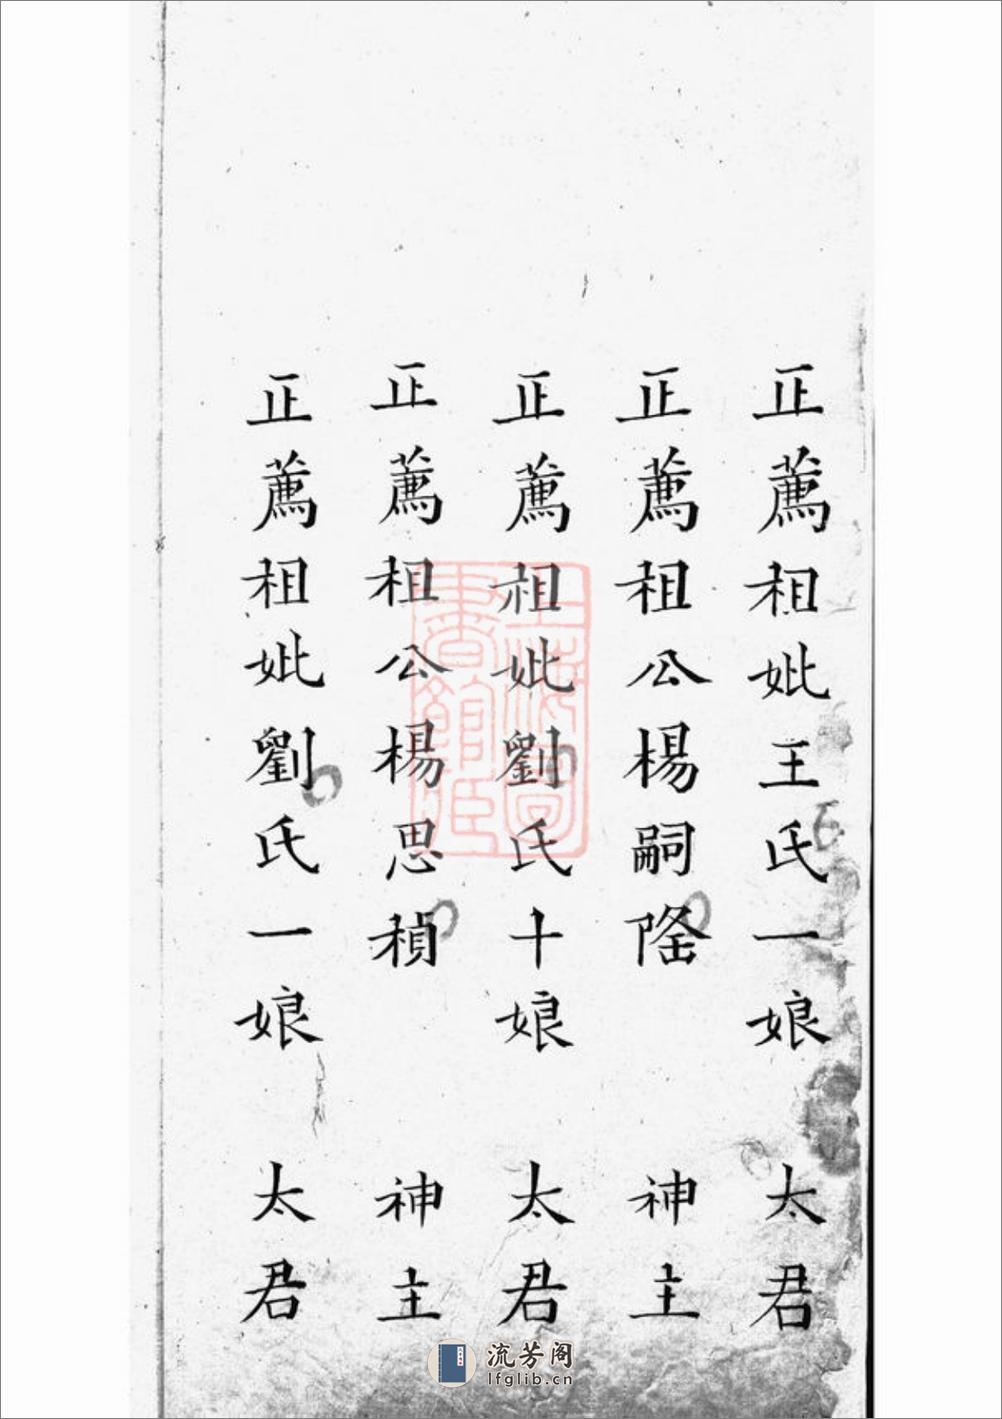 正薦祖妣王氏一娘 太君
正薦祖公楊嗣隆 神主
正薦祖妣劉氏十娘 太君
正薦祖公楊思稹 神主
正薦祖妣劉氏一娘 太君
上海圖書館藏
流芳阁
lfglib.cn